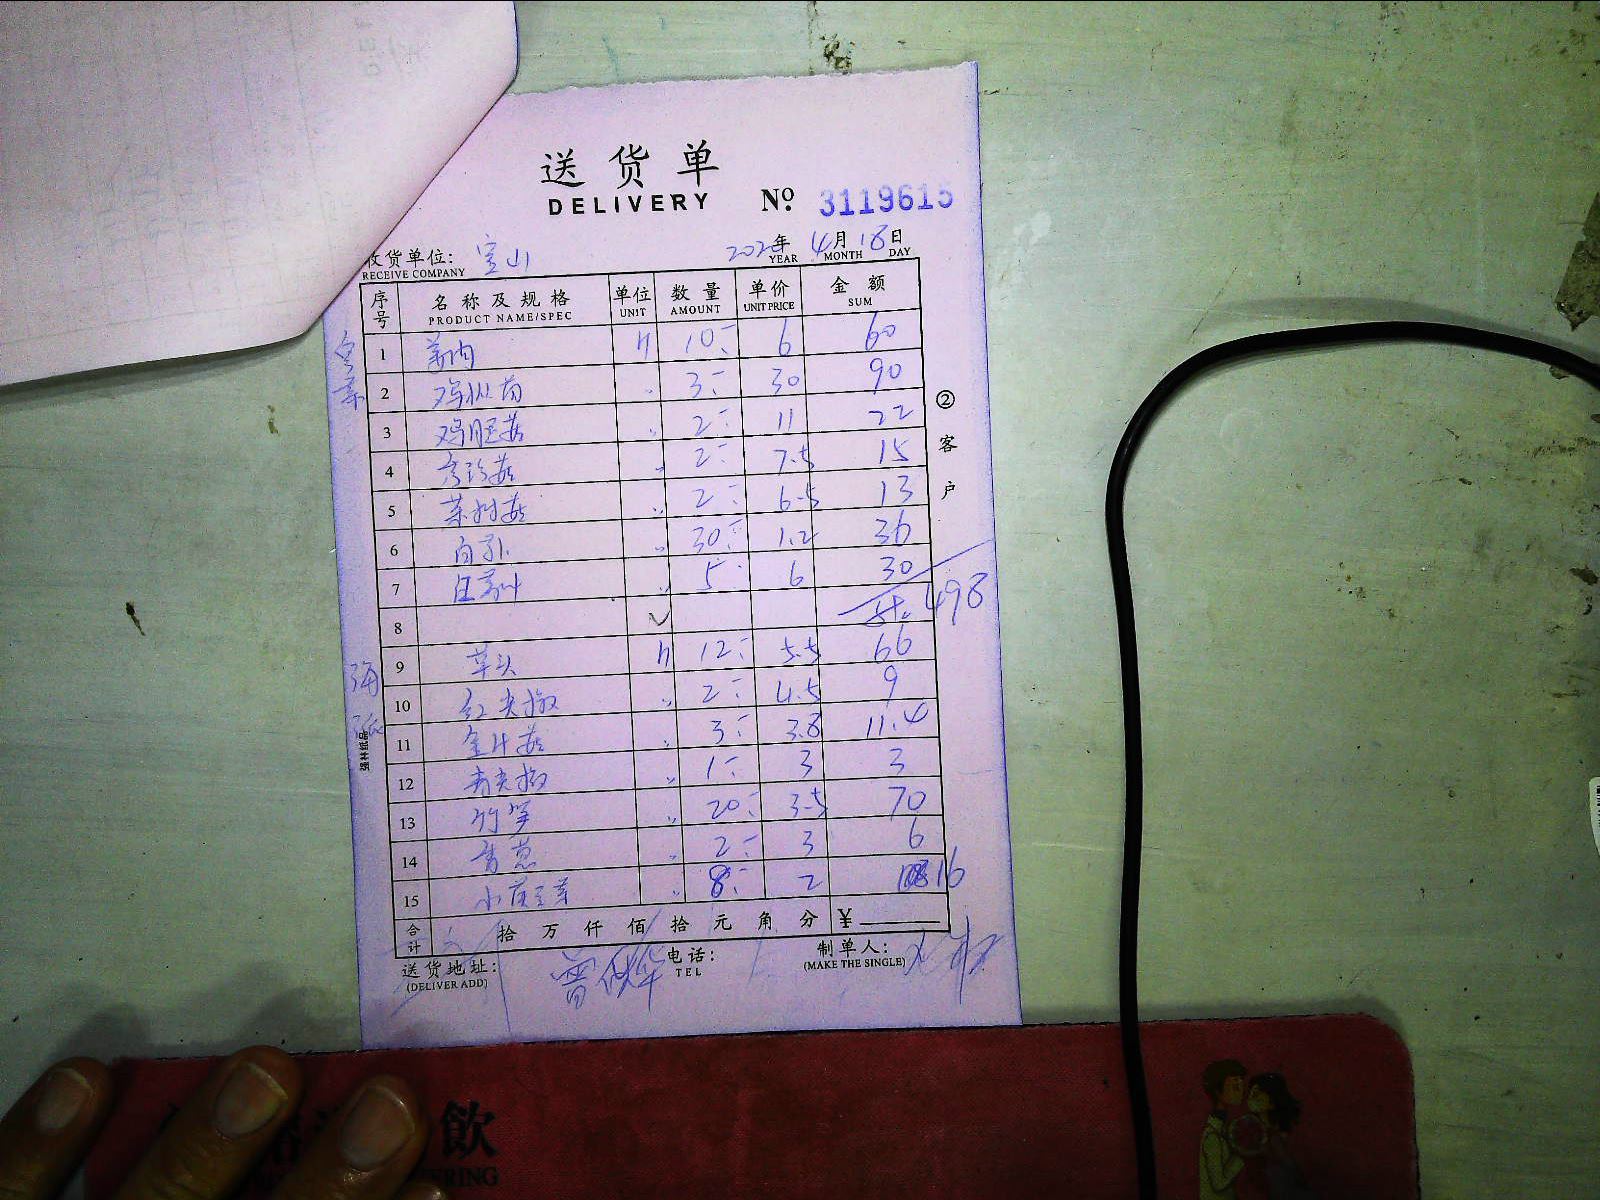 送货单
DELIVERY № 3119615
收货单位: 宝山 年 4月 18日
RECEIVE COMPANY YEAR MONTH DAY
序号 名称及规格 单位 数量 单价 金额
PRODUCT NAME/SPEC UNIT AMOUNT UNIT PRICE SUM
1 姜肉 斤 10 6 60
2 鸡枞菌 〃 3 30 90
3 鸡腿菇 〃 2 11 22
4 秀珍菇 〃 2 7.5 15
5 茶树菇 〃 2 6.5 13
6 〃 30 1.2 36
7 〃 5 6 30
8 498
9 草头 斤 12 5.5 66
10 红尖椒 〃 2 4.5 9
11 金针菇 〃 3 3.8 11.4
12 青尖椒 〃 1 3 3
13 竹笋 〃 20 3.5 70
14 香葱 〃 2 3 6
15 〃 8 2 16
合计 拾 万 仟 佰 拾 元 角 分 ¥
送货地址: 电话: 制单人:
(DELIVER ADD) TEL (MAKE THE SINGLE)
②客户
强林纸品
飲
ERING